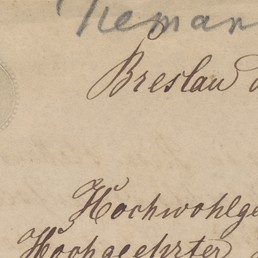 Breslau
Hochwohlge
Hochgeehrter